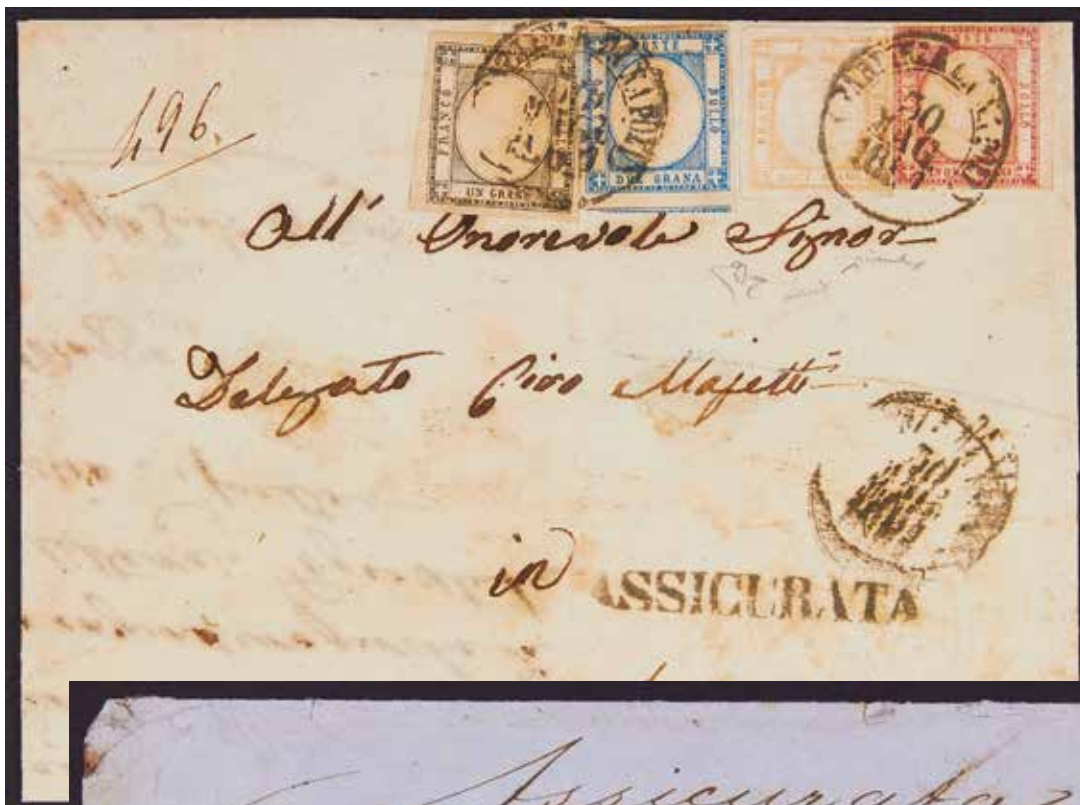 496.
FRANCO
UN GRANO
POSTE
BOLLO
DUE GRANA
NAPOLI
FRANCO
BOLLO
30
MAG
All' Onorevole Signor
Delegato Ciro Majetti
30
in
ASSICURATA
Assicurata